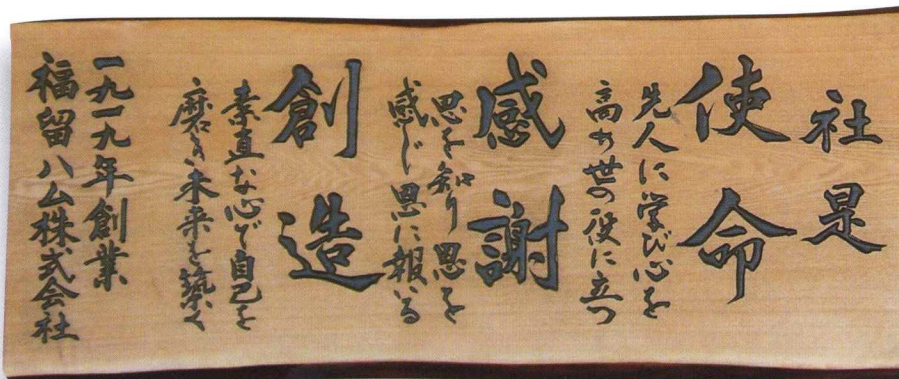 社是
使命
先人に学び心を
高め世の役に立つ
感謝
恩を知り恩を
感じ恩に報いる
創造
素直な心で自己を
磨き未来を築く
一九一九年創業
福留ハム株式会社